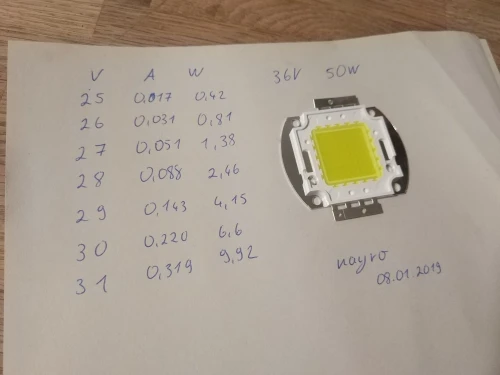 V A W
25 0,017 0,42
26 0,031 0,81
27 0,051 1,38
28 0,088 2,46
29 0,143 4,15
30 0,220 6,6
31 0,319 9,92
36V 50W
nayro
08.01.2019